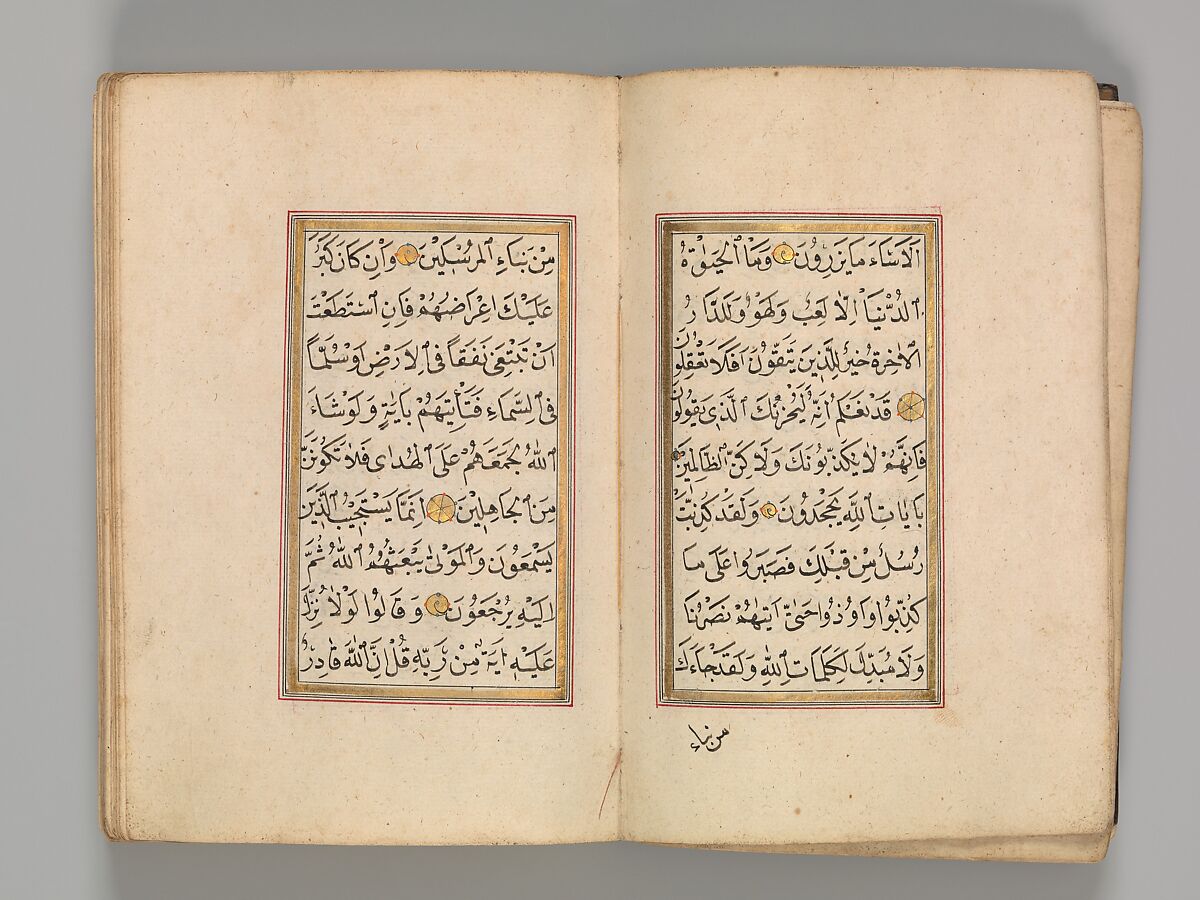 اَلَا سَاءَ مَا يَزِرُونَ وَمَا الْحَيٰوةُ
الدُّنْيَا اِلَّا لَعِبٌ وَلَهْوٌ وَلَلدَّارُ
الْاٰخِرَةُ خَيْرٌ لِلَّذِينَ يَتَّقُونَ اَفَلَا تَعْقِلُونَ
قَدْ نَعْلَمُ اِنَّهُ لَيَحْزُنُكَ الَّذِى يَقُولُونَ
فَاِنَّهُمْ لَا يُكَذِّبُونَكَ وَلٰكِنَّ الظَّالِمِينَ
بِاٰيَاتِ اللّٰهِ يَجْحَدُونَ وَلَقَدْ كُذِّبَتْ
رُسُلٌ مِنْ قَبْلِكَ فَصَبَرُوا عَلٰى مَا
كُذِّبُوا وَاُوذُوا حَتّٰى اَتٰيهُمْ نَصْرُنَا
وَلَا مُبَدِّلَ لِكَلِمَاتِ اللّٰهِ وَلَقَدْ جَاءَكَ
من نباء
مِنْ نَبَاءِ الْمُرْسَلِينَ وَاِنْ كَانَ كَبُرَ
عَلَيْكَ اِعْرَاضُهُمْ فَاِنِ اسْتَطَعْتَ
اَنْ تَبْتَغِىَ نَفَقًا فِى الْاَرْضِ اَوْ سُلَّمًا
فِى السَّمَاءِ فَتَأْتِيَهُمْ بِاٰيَةٍ وَلَوْ شَاءَ
اللّٰهُ لَجَمَعَهُمْ عَلَى الْهُدٰى فَلَا تَكُونَنَّ
مِنَ الْجَاهِلِينَ اِنَّمَا يَسْتَجِيبُ الَّذِينَ
يَسْمَعُونَ وَالْمَوْتٰى يَبْعَثُهُمُ اللّٰهُ ثُمَّ
اِلَيْهِ يُرْجَعُونَ وَقَالُوا لَوْلَا نُزِّلَ
عَلَيْهِ اٰيَةٌ مِنْ رَبِّهِ قُلْ اِنَّ اللّٰهَ قَادِرٌ